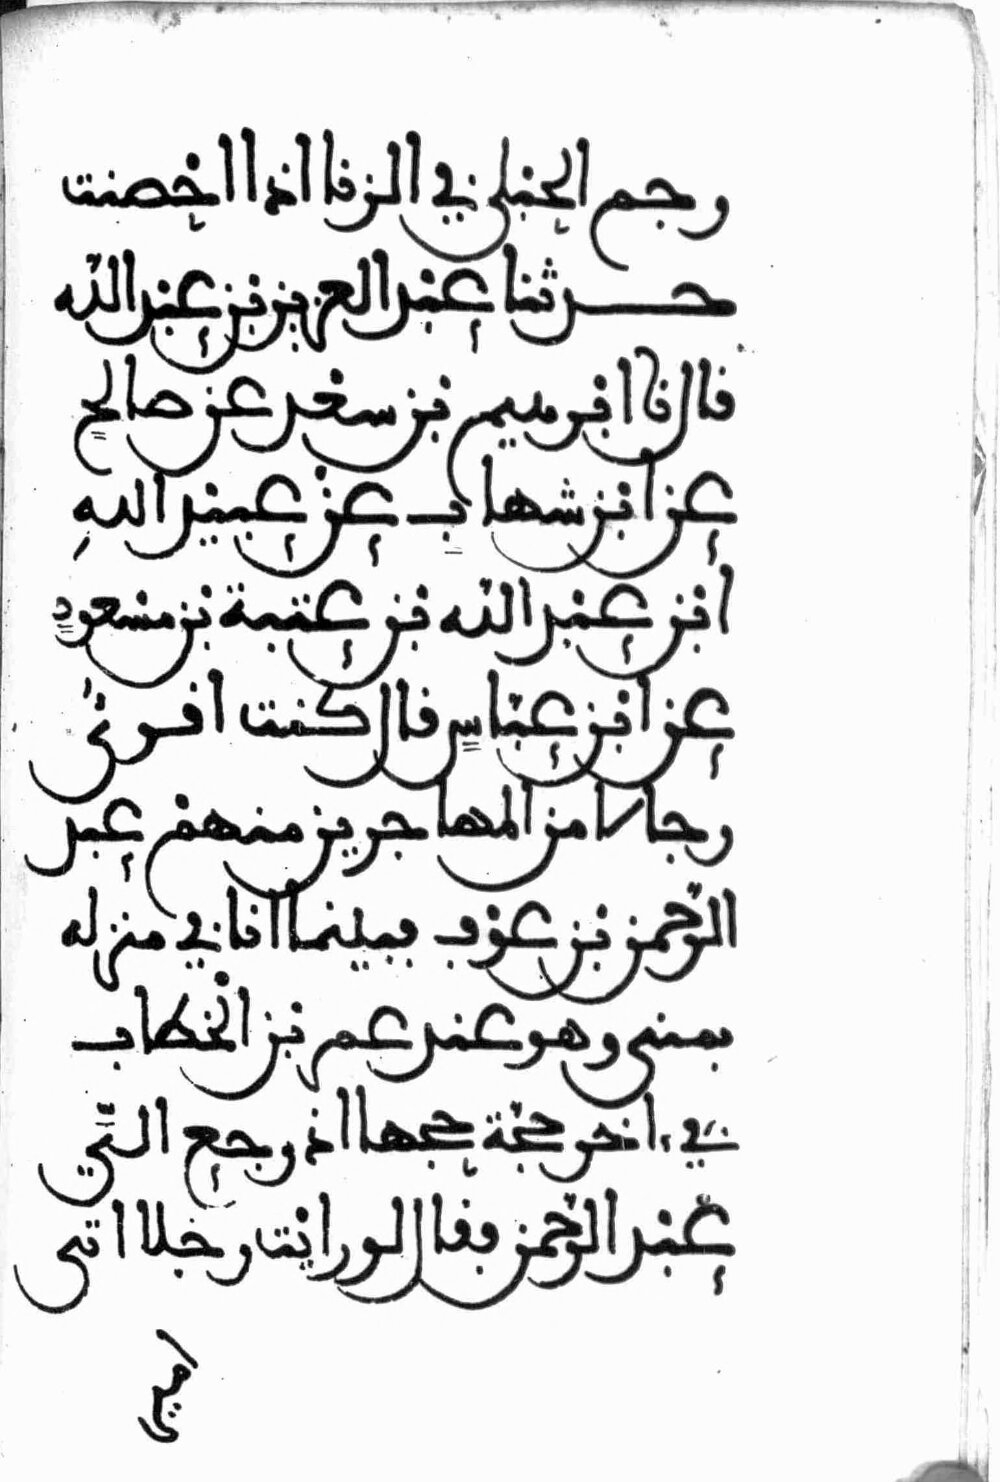 رجم الحبلى في الزنا اذا احصنت
حدثنا عبد العزيز بن عبد الله
قال نا ابرهيم بن سعد عن صالح
عن ابن شهاب عن عبيد الله
ابن عبد الله بن عتبة بن مسعود
عن ابن عباس قال كنت اقرئ
رجالا من المهاجرين منهم عبد
الرحمن بن عوف فبينما انا في منزله
بمنى وهو عند عمر بن الخطاب
في ءاخر حجة حجها اذ رجع الي
عبد الرحمن فقال لو رايت رجلا اتى
امير